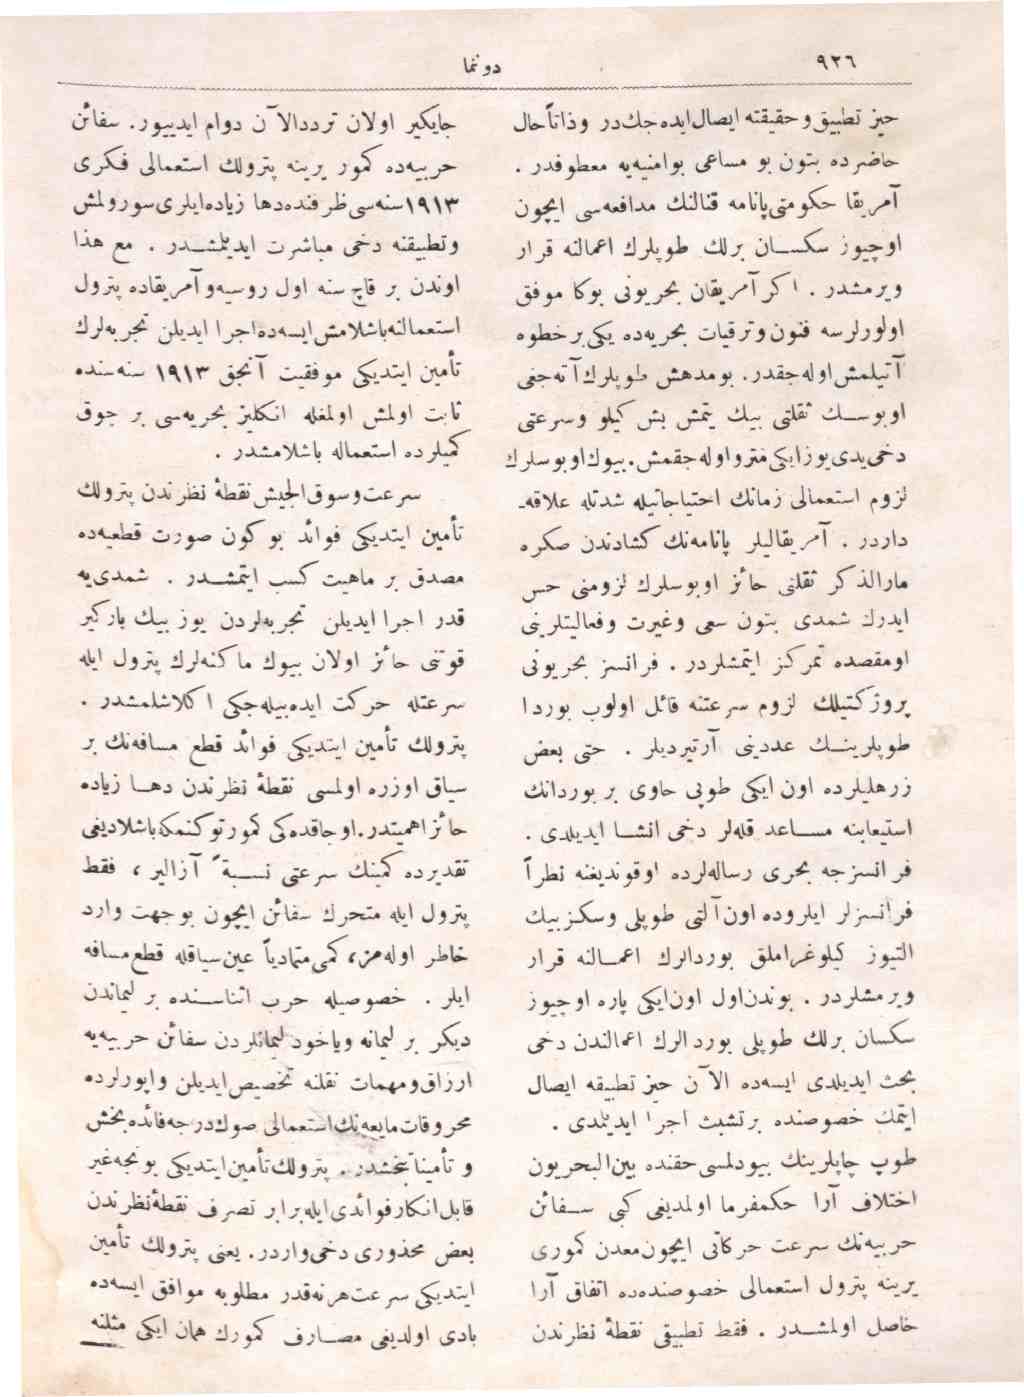 ٩٢٦
دوننما
حيز تطبيق و حقيقته ايصال ايده جك در و ذاتاً حال
حاضرده بتون بو مساعى بو امنيه‌يه معطوفدر .
آمريقا حكومتى پانامه قنالنك مدافعه‌سى ايچون
اوچيوز سكسـان برلك طوپلرك اعمالنه قرار
ويرمشدر . اكر آمريقان بحريونى بوكا موفق
اولورلرسه فنون و ترقيات بحريه‌ده يكى بر خطوه
آتيلمش اوله‌جقدر . بو مدهش طوپلرك آته‌جغى
اوبوسـك ثقلتى بيك يتمش بش كيلو وسرعتى
دخى يدى يوز ايكى مترو اوله‌جقمش . بيوك اوبوسلرك
لزوم استعمالى زمانك احتياجاتيله شدتله علاقه‌-
داردر . آمريقاليلر پانامه‌نك كشادندن صكره
مارالذكر ثقلتى حائز اوبوسلرك لزومنى حس
ايدرك شمدى بتون سعى وغيرت وفعاليتلرينى
او مقصده تمركز ايتمشلردر . فرانسز بحريونى
پروژكتيلك لزوم سرعتنه قائل اولوب بوردا
طوپلرينـك عددينى آرتيرديلر . حتى بعض
زرهليلرده اون ايكى طوپى حاوى بر بوردانك
استيعابنه مسـاعد قله‌لر دخى انشـا ايديلدى .
فرانسزجه بحرى رساله‌لرده اوقونديغنه نظراً
فرانسزلر ايلروده اون آلتى طوپلى وسكز بيك
التيوز كيلوغراملق بوردالرك اعمـالنه قرار
ويرمشلردر . بوندن اول اون ايكى پاره اوچيوز
سكسان برلك طوپلى بوردالرك اعمالندن دخى
بحث ايديلدى ايسه‌ده الآن حيز تطبيقه ايصال
ايتمك خصوصنده بر تشبث اجرا ايديلمدى .
طوپ چاپلرينك بيودلمسى حقنده بين البحريون
اختلاف آرا حكمفرما اولمديغى كبى سـفائن
حربيه‌نك سرعت حركاتى ايچون معدن كمورى
يرينه پترول استعمالى خصوصنده‌ده اتفاق آرا
حاصل اولمشـدر . فقط تطبيقى نقطۀ نظرندن
جايكير اولان تردد الآن دوام ايدييور . سفائن
حربيه‌ده كمور يرينه پترولك استعمالى فكرى
١٩١٣ سنه‌سى ظرفنده دها زياده ايلرى سورولمش
وتطبيقنه دخى مباشرت ايديلمشـدر . مع هذا
اوندن بر قاچ سنه اول روسيه و آمريقاده پترول
استعمالنه باشلامش ايسه‌ده اجرا ايديلن تجربه‌لرك
تأمين ايتديكى موفقيت آنجق ١٩١٣ سنه‌سنده
ثابت اولمش اولمغله انكليز بحريه‌سى بر چوق
كميلرده استعماله باشلامشدر .
سرعت و سوق الجيش نقطۀ نظرندن پترولك
تأمين ايتديكى فوائد بو كون صورت قطعيه‌ده
مصدق بر ماهيت كسب ايتمشـدر . شمدى‌يه
قدر اجرا ايديلن تجربه‌لردن يوز بيك باركير
قوتنى حائز اولان بيوك ماكنه‌لرك پترول ايله
سرعتله حركت ايده‌بيله‌جكى اكلاشلمشدر .
پترولك تأمين ايتديكى فوائد قطع مسافه‌نك بر
سياق اوزره اولمسى نقطۀ نظرندن دهـا زياده
حائز اهميتدر . اوجاقده‌كى كمور توكنمكه باشلاديغى
تقديرده كمينك سرعتى نسـبةً آزالير ، فقط
پترول ايله متحرك سفائن ايچون بو جهت وارد
خاطر اوله‌مز ، كمى متمادياً عين سياقله قطع مسافه
ايلر . خصوصيله حرب اثناسـنده بر ليماندن
ديكر بر ليمانه وياخود ليمانلردن سفائن حربيه‌يه
ارزاق و مهمات نقلنه تخصيص ايديلن واپورلرده
محروقات مايعه‌نك استعمالى صوك درجه فائده بخش
و تأمينا تبخشدر . پترولك تأمين ايتديكى بونجه غير
قابل انكار فوائدى ايله برابر تصرف نقطۀ نظرندن
بعض محذورى دخى واردر . يعنى پترولك تأمين
ايتديكى سرعت هر نه‌قدر مطلوبه موافق ايسه‌ده
بادى اولديغى مصـارف كمورك همان ايكى مثلنه